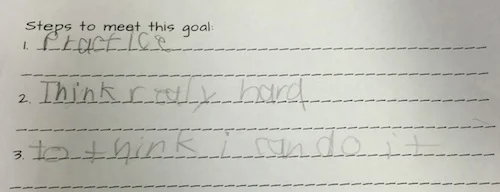 Steps to meet this goal:
1. Practice
2. Think really hard
3. to think i can do it